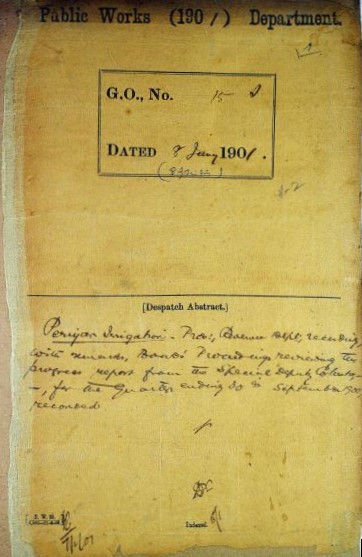 Public Works (1901) Department.
G.O., No. 15
DATED 8 Jany 1901.
(Despatch Abstract.)
Periyar Irrigation - Revenue Dept, recording,
with remarks, Board's Proceedings reviewing the
progress report from the Special Deputy Collector
-, for the Quarter ending 30th September 1900,
recorded
P. W. D.
Indexed.